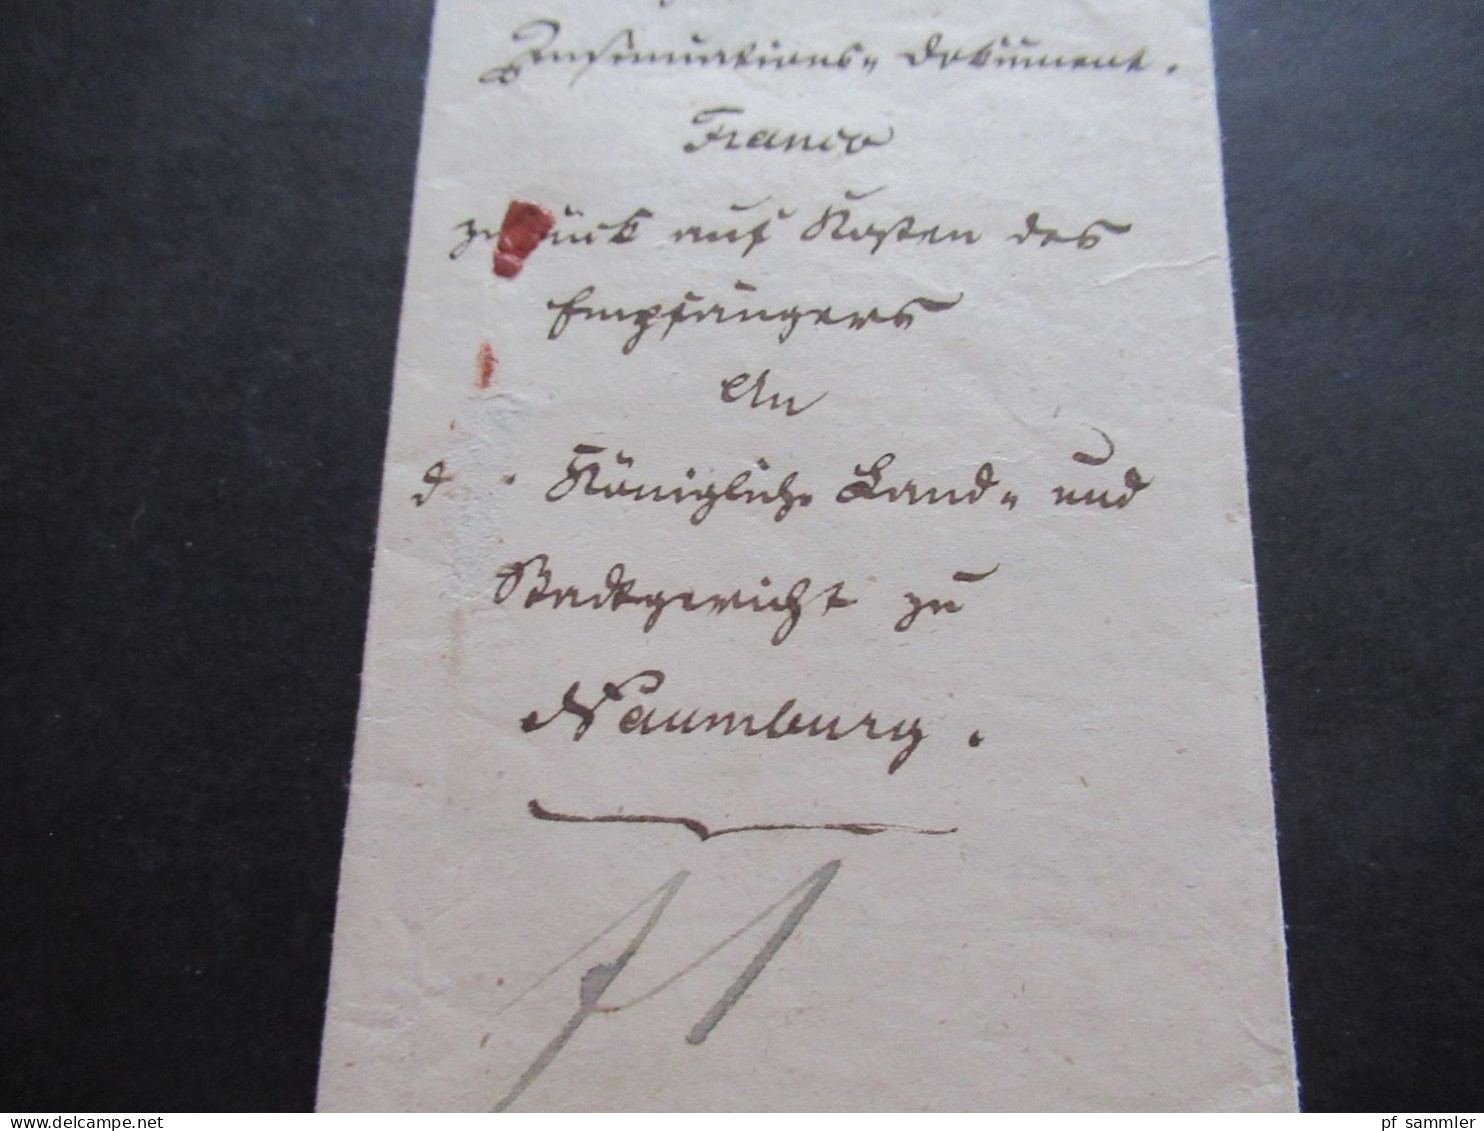 Insinuations- Dokument.
Franco
zurück auf Kosten des
Empfängers
An
d Königliche Land- und
Stadtgericht zu
Naumburg.
pf_sammler
www.delcampe.net